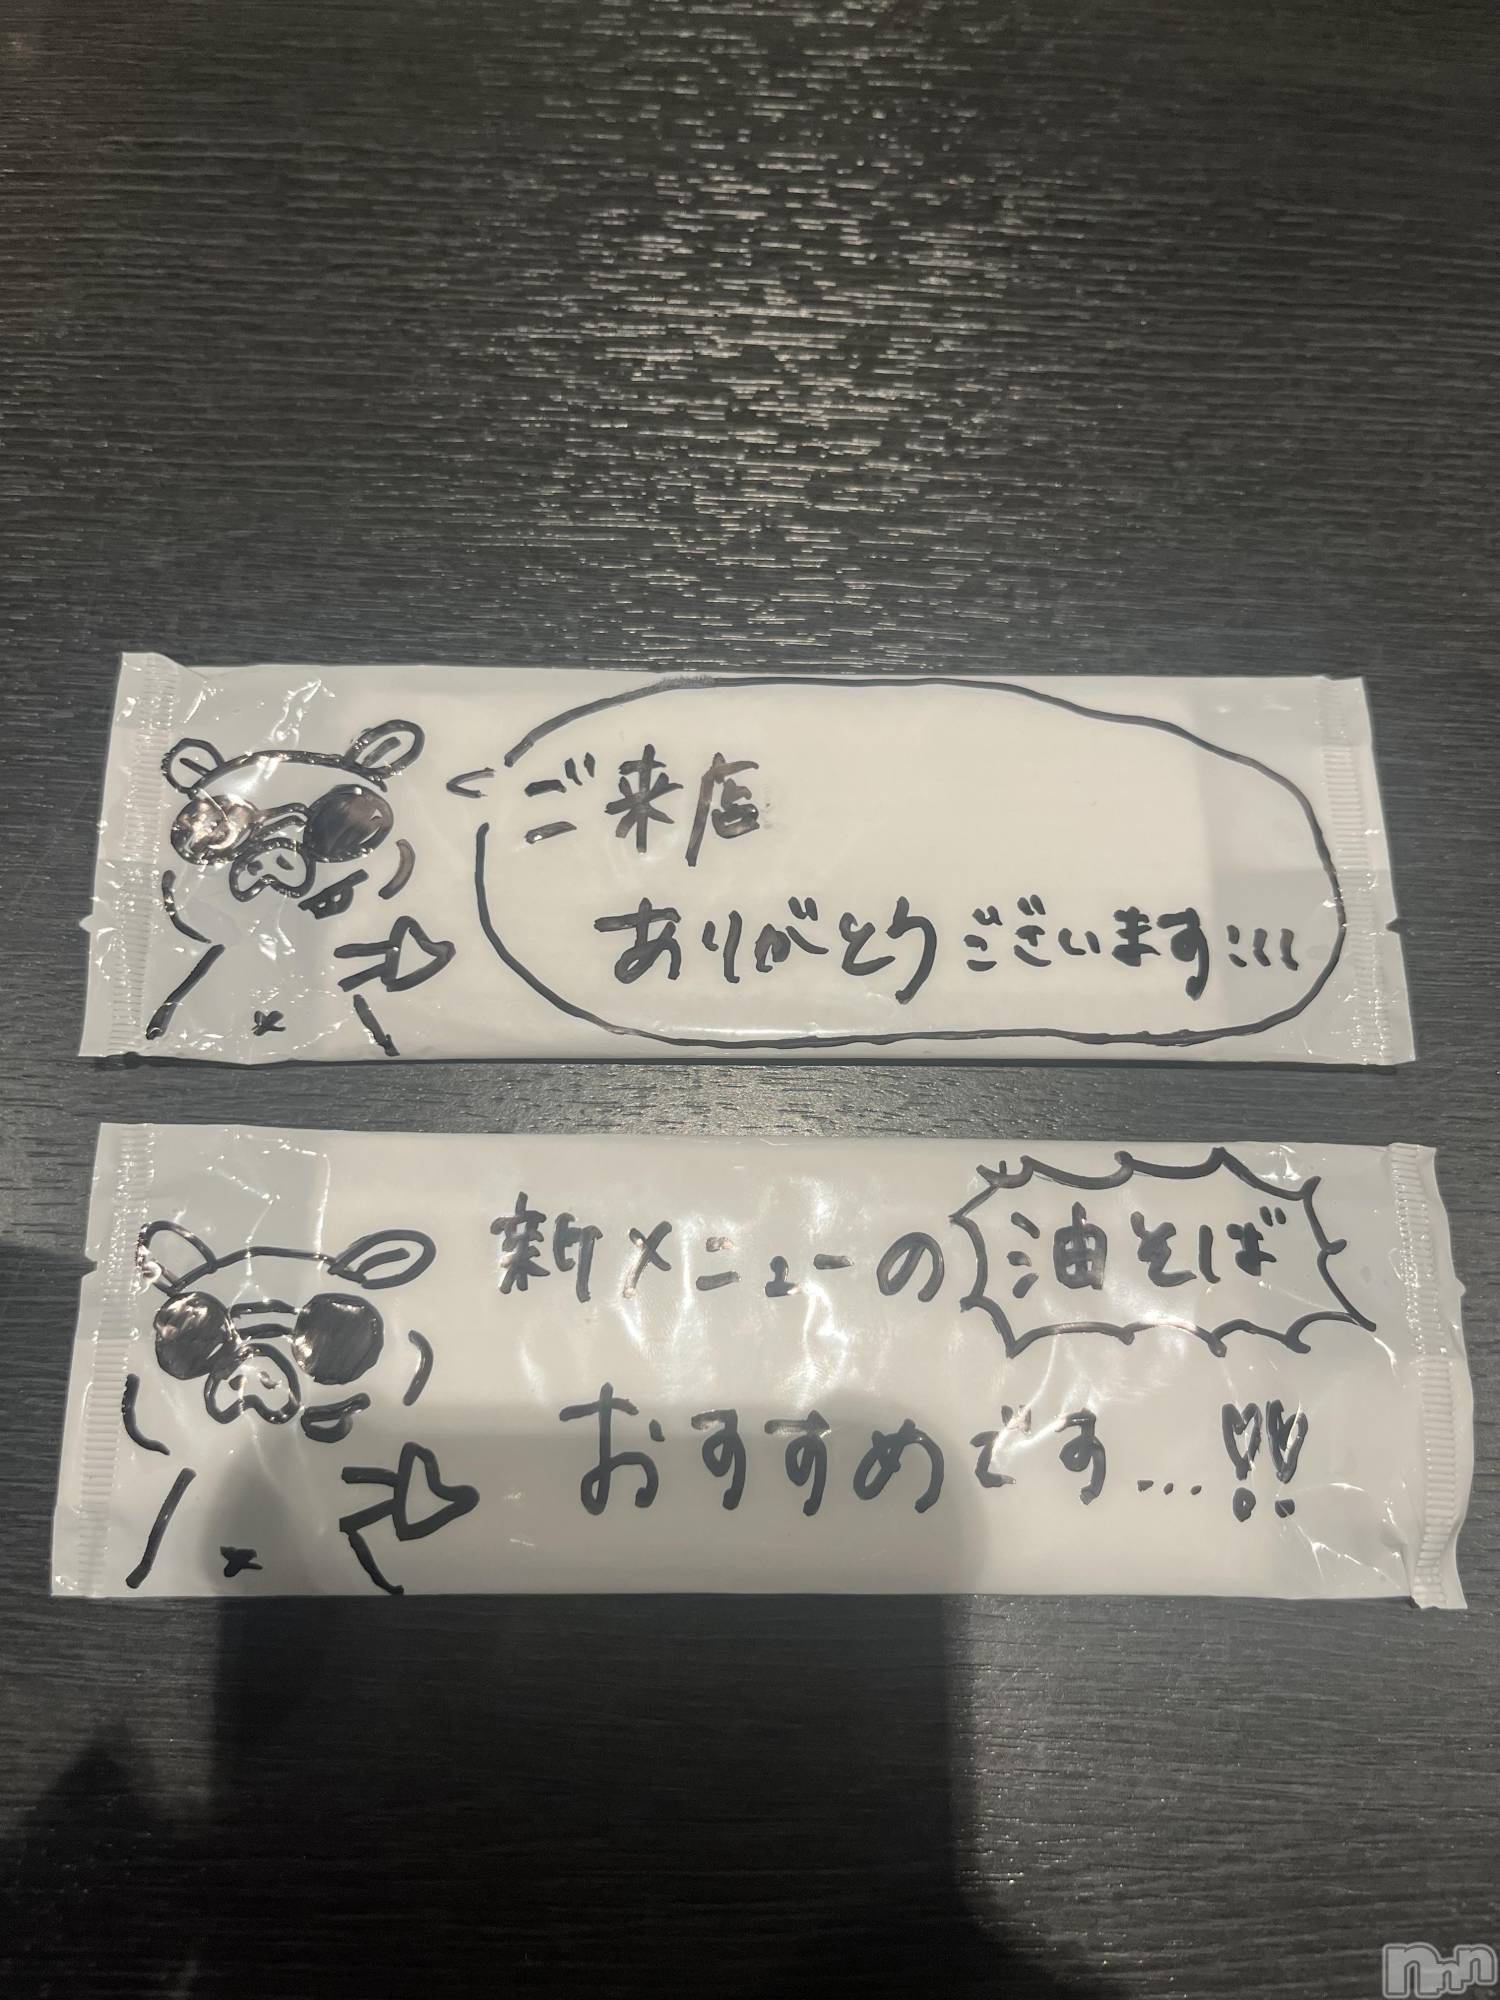 ご来店
ありがとうございます…
新メニューの油そば
おすすめです…!!